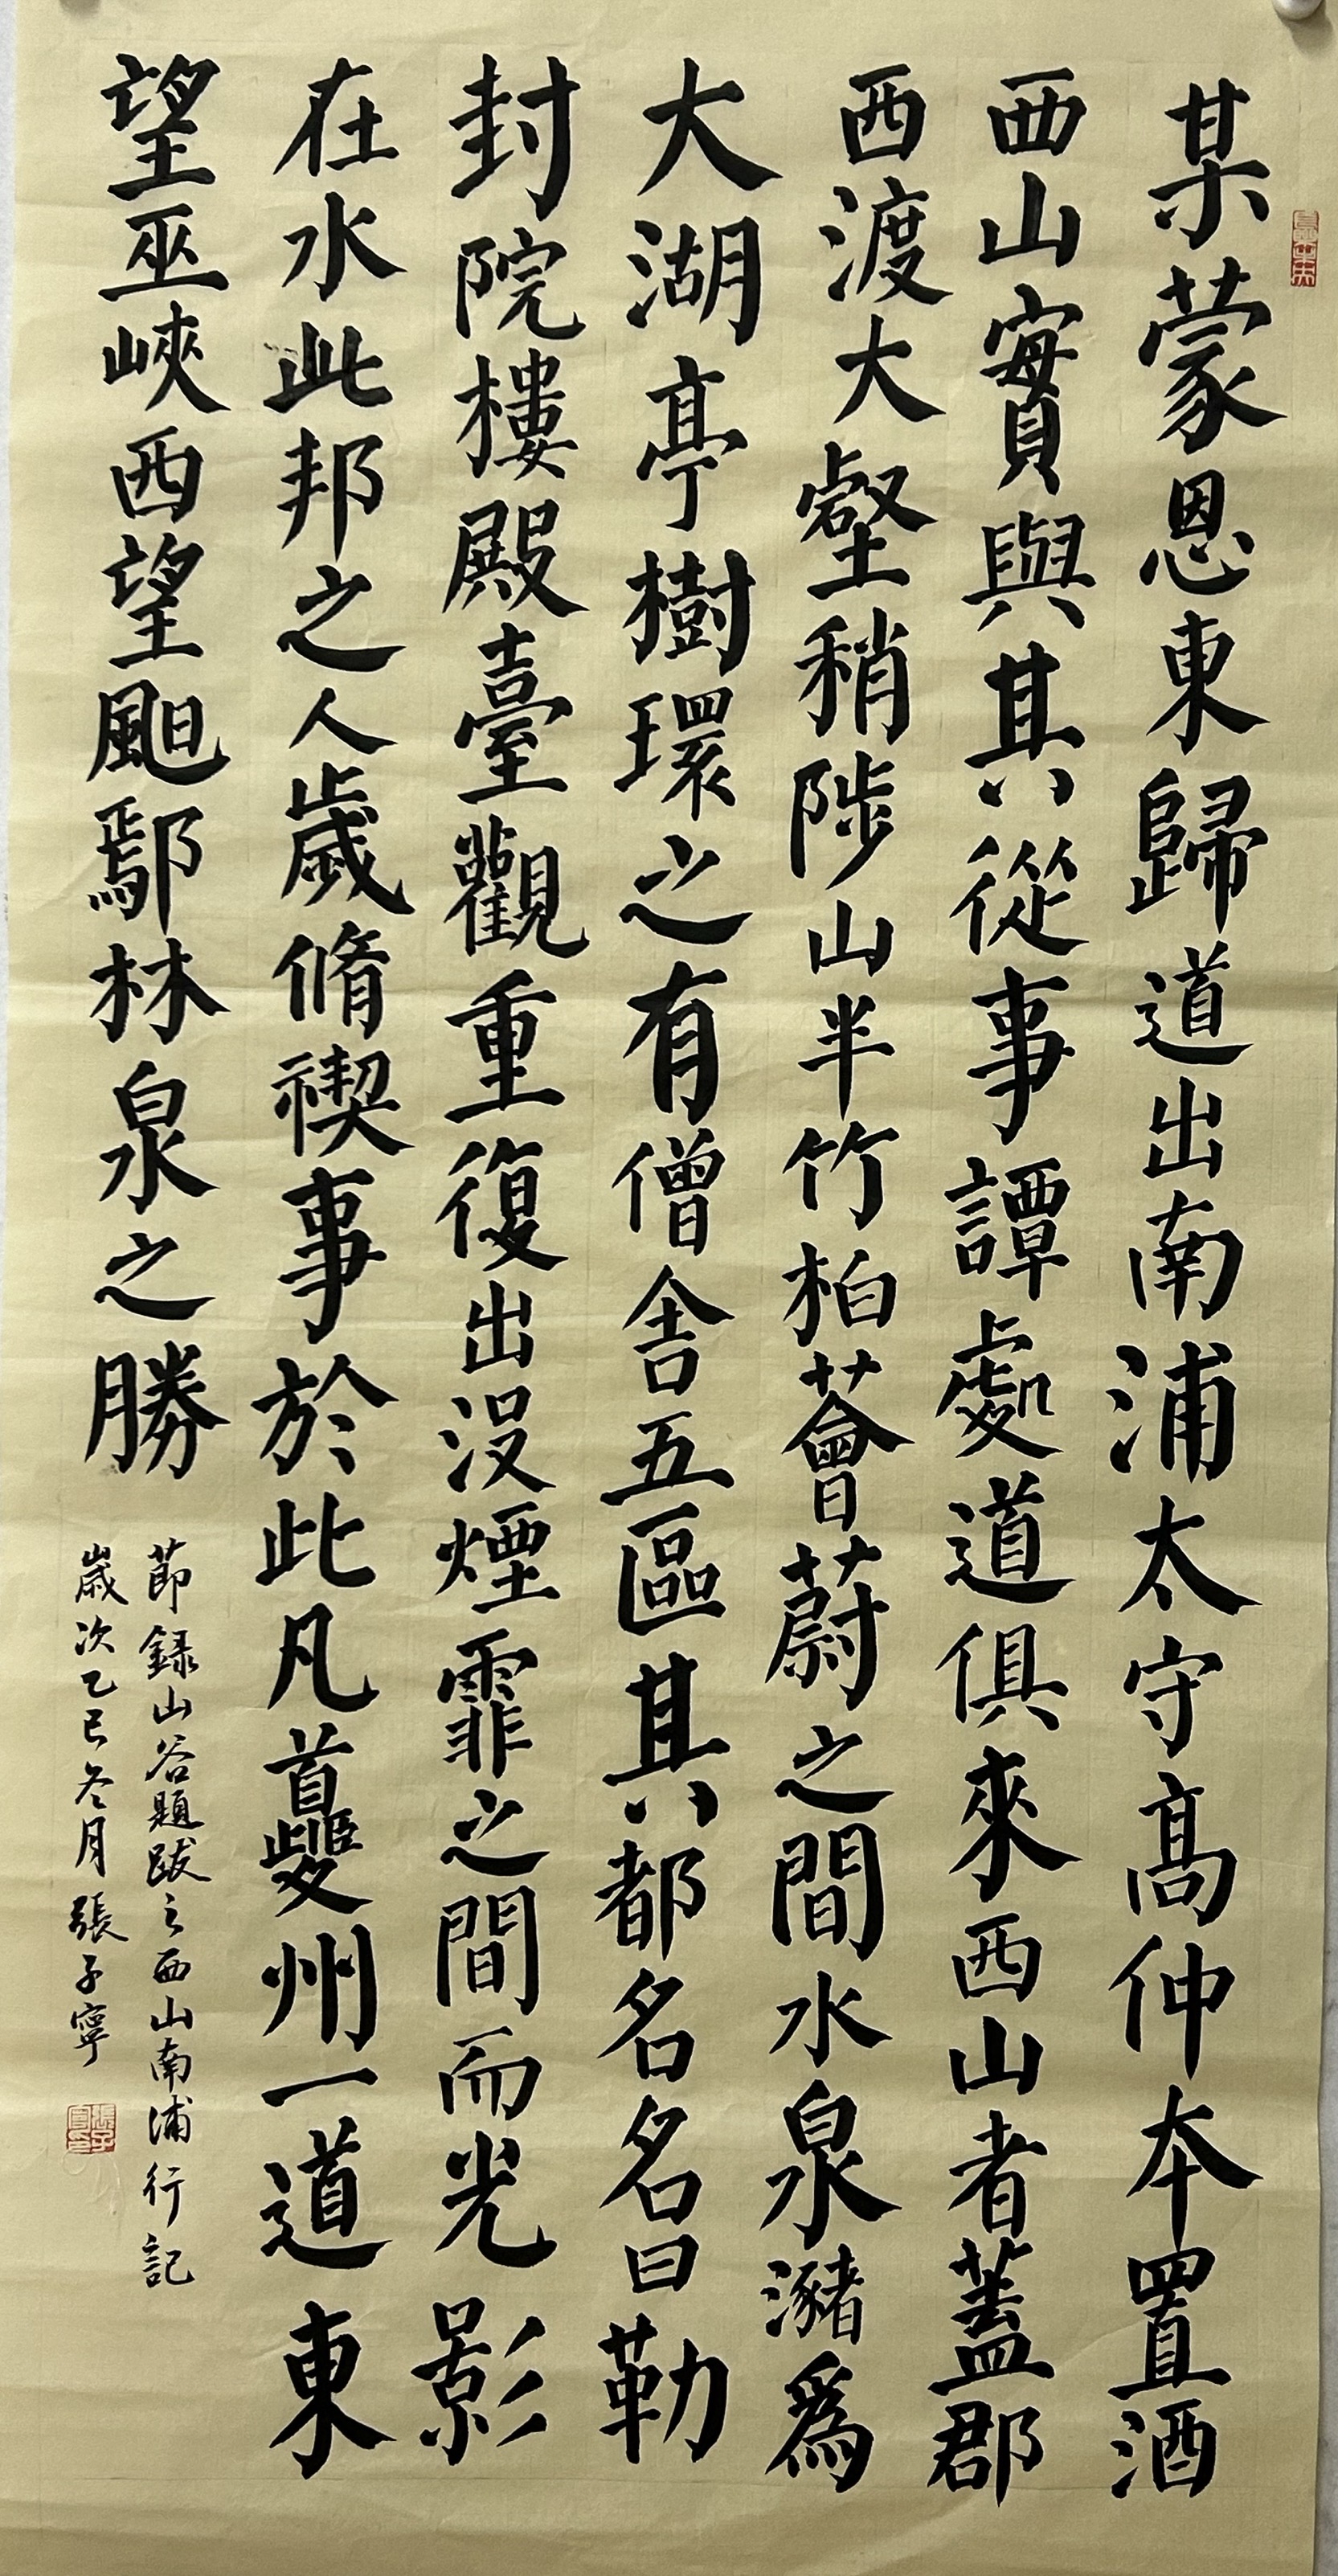 某蒙恩東歸道出南浦太守高仲本置酒
西山實與其從事譚處道俱來西山者蓋郡
西渡大壑稍陟山半竹柏薈蔚之間水泉瀦爲
大湖亭樹環之有僧舍五區其都名名曰勒
封院樓殿臺觀重復出没煙霏之間而光影
在水此邦之人歲脩禊事於此凡夔州一道東
望巫峽西望䣝鄢林泉之勝
節録山谷題跋之西山南浦行記
歲次乙巳冬月張子寧